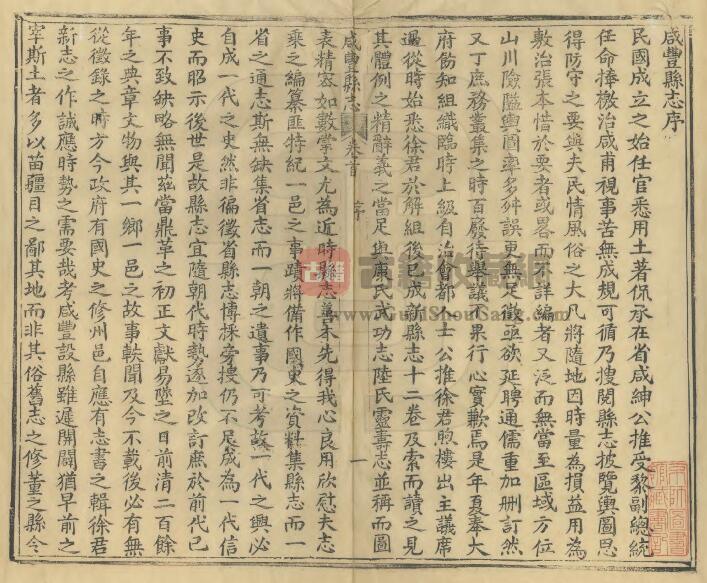 咸豐縣志序
民國成立之始任官悉用土著侃承在省咸紳公推受黎副總統
任命捧檄治咸甫視事苦無成規可循乃搜閱縣志披覽輿圖思
得防守之要與夫民情風俗之大凡將隨地因時量為損益用為
敷治張本惜於要者或畧而不詳編者又泛而無當至區域方位
山川險隘輿圖率多舛誤更無足徵亟欲延聘通儒重加刪訂然
又丁庶務叢集之時百廢待舉議不果行心實歉焉是年夏奉大
府飭知組織臨時上級自治會都人士公推徐君煦樓出主議席
過從時始悉徐君於解組後已成新縣志十二卷及索而讀之見
其體例之精辭義之當足與康氏武功志陸氏靈壽志並稱而圖
表精密如數掌文尤為近時縣志善本先得我心良用欣慰夫志
咸豐縣志 卷首 序 一
乘之編纂匪特紀一邑之事蹟將備作國史之資料集縣志而一
省之通志斯無缺集省志而一朝之遺事乃可考故一代之興必
自成一代之史然非徧徵省縣志博採旁搜仍不足成為一代信
史而昭示後世是故縣志宜隨朝代時埶遞加改訂庶於前代已
事不致缺略無聞茲當鼎革之初正文獻易墜之日前清二百餘
年之典章文物與其一鄉一邑之故事軼聞及今不載後必有無
從徵錄之時方今政府有國史之修州邑自應有志書之輯徐君
新志之作誠應時勢之需要哉考咸豐設縣雖遲開闢猶早前之
宰斯土者多以苗疆目之鄙其地而非其俗舊志之修董之縣令
古籍
古籍收藏網
www.GuJiShouCang.com